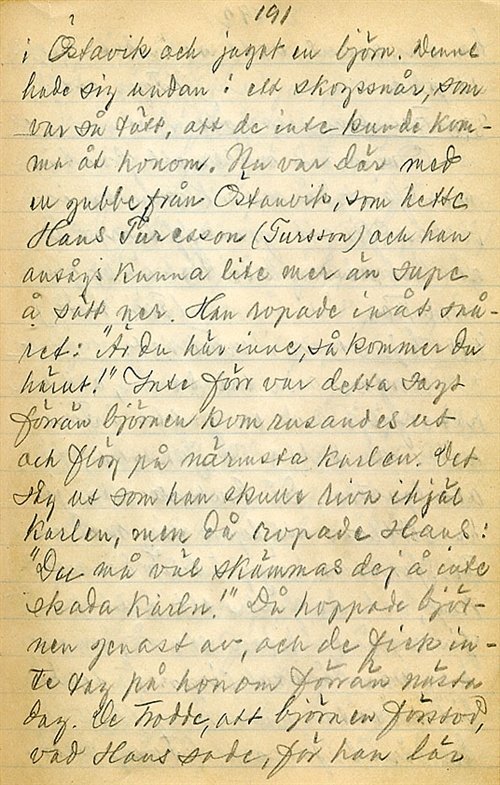 191
i Östavik och jagat en björn. Denne
hade sig undan i ett skogssnår, som
var så tätt, att de inte kunde kom-
ma åt honom. Nu var där med
en gubbe från Östanvik, som hette
Hans Turesson (Tursson) och han
ansågs kunna lite mer än supe
å sätt ner. Han ropade inåt snå-
ret: "Är du här inne, så kommer du
härut!" Inte förr var detta sagt
förrän björnen kom rusandes ut
och flög på närmsta karlen. Det
såg ut som han skulle riva ihjäl
karlen, men då ropade Hans:
"Du må väl skämmas dej å inte
skada karln!" Då hoppade björ-
nen genast av, och de fick in-
te tag på honom förrän nästa
dag. De trodde, att björnen förstod,
vad Hans sade, för han lär